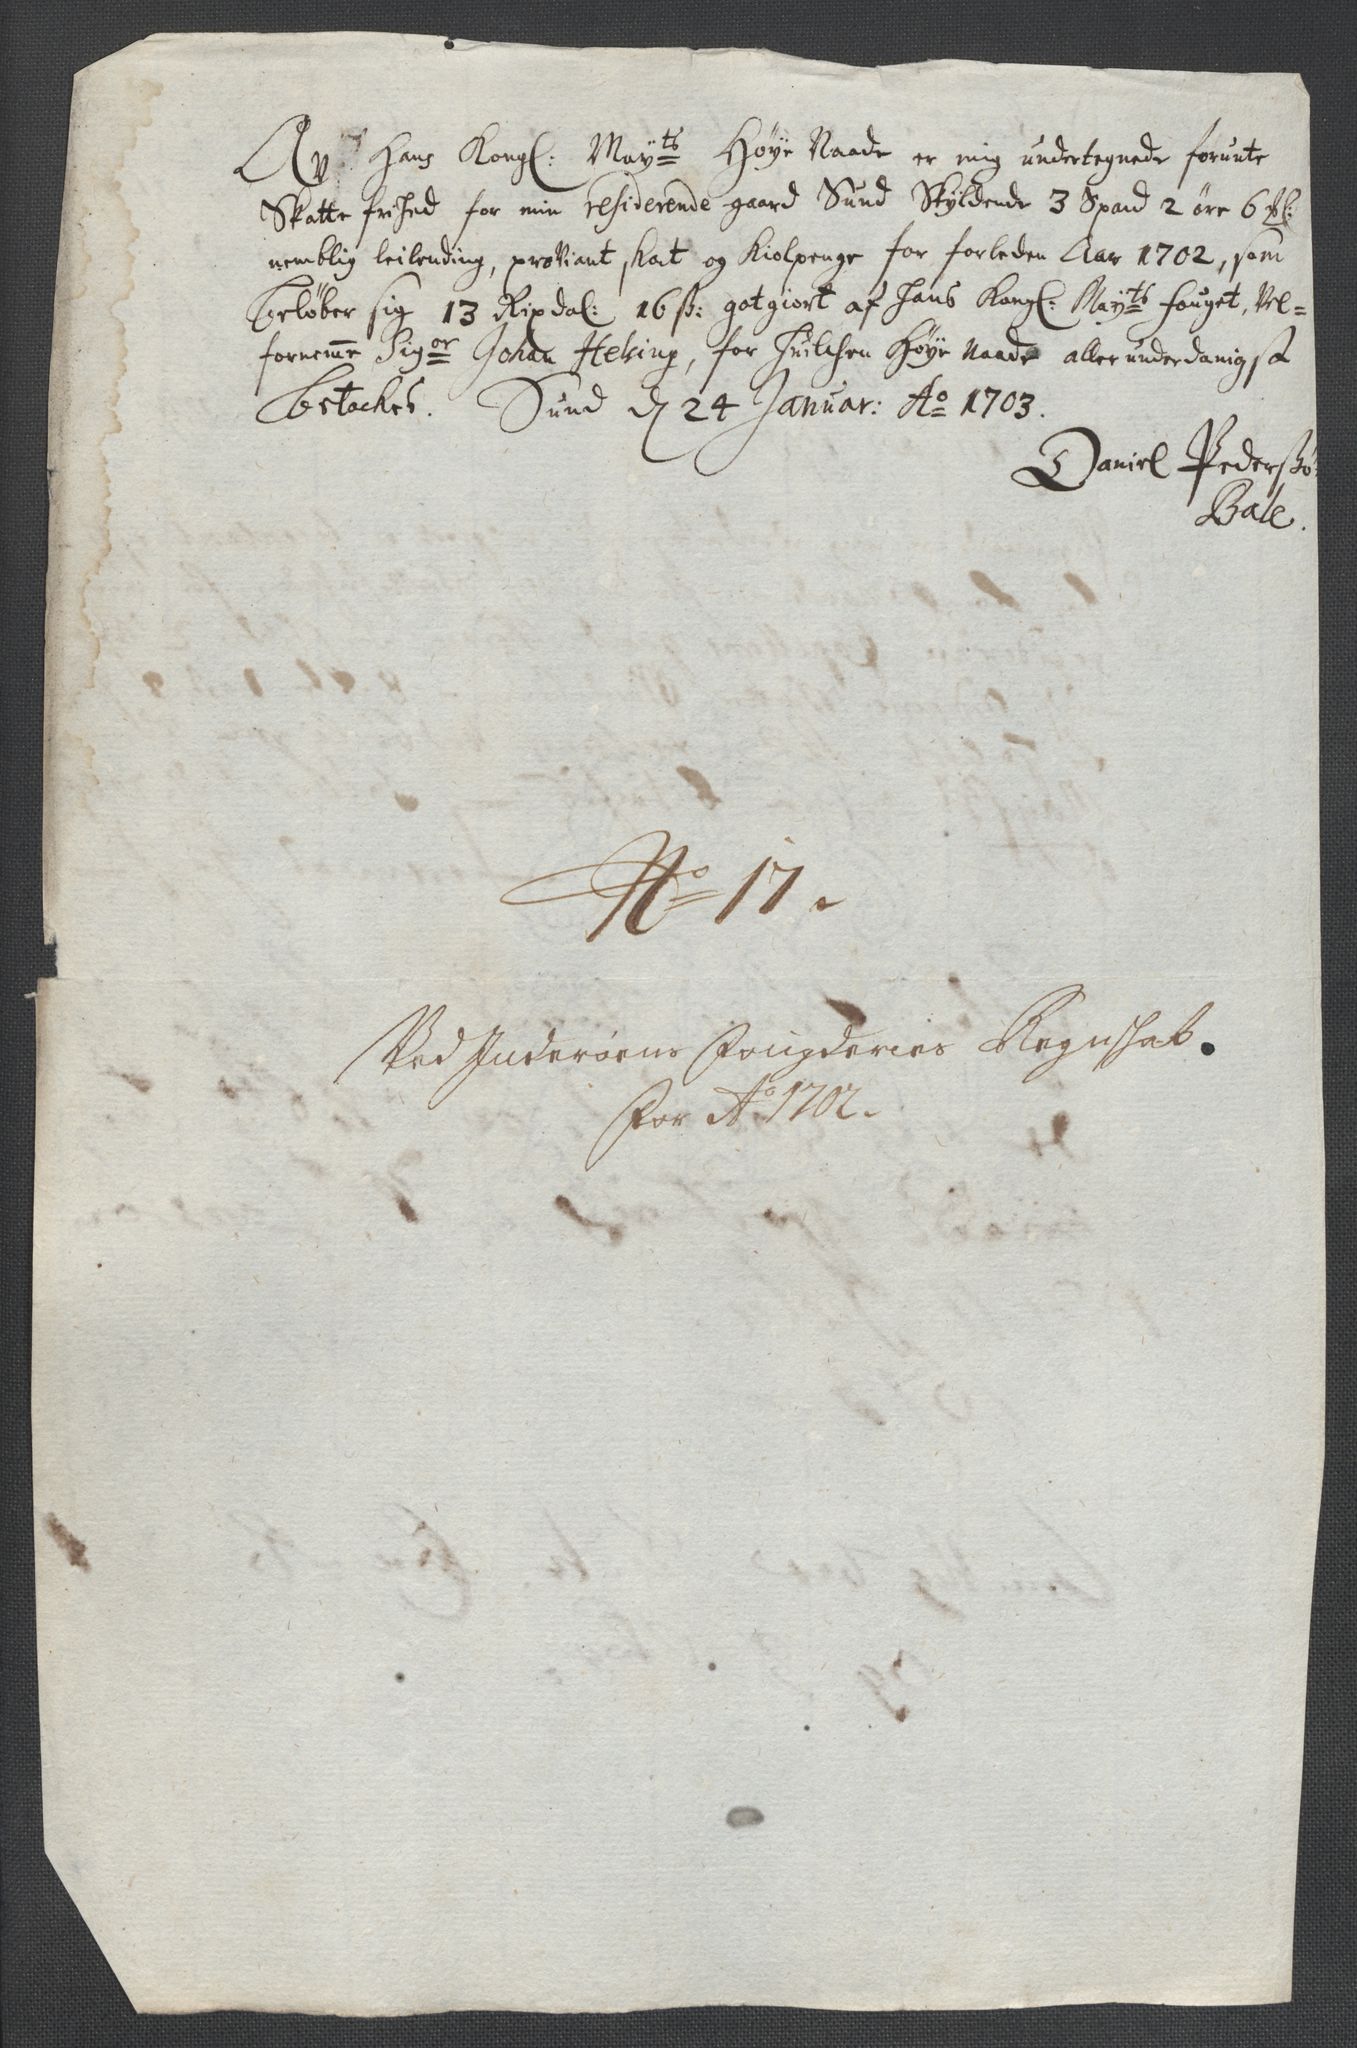 Av Hans Kongl: May^ts Høye Naade er mig undertegnede forunte
Skatte frihed for min residerende gaard Sund Skyldende 3 Spand 2 öre 6 Ml:
nemblig leilending, proviant skat og Kiolpenge for forleden Aar 1702, som
beløber sig 13 Rixdal: 16 ß: gotgiort af Hans Kongl: May^ts fouget, Vel=
fornemme Sig^or Johan Helsing, for huilchen Høye Naade allerunderdanigst
betackes. Sund d 24 Januar: A^o 1703.
Daniel Pederssø:
Bale.
N^o 17.
Ved Inderøens Fougderies Regnshab.
For A^o 1702.